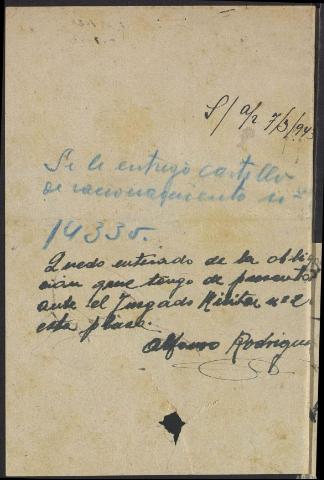 S/ a/p 7/3/943
Se le entregó cartilla
de racionamiento nº
14330.
Quedo enterado de la oblig
cion que tengo de presenta
ante el Juzgado Militar nº 2
esta plaza.
Alfonso Rodrigue